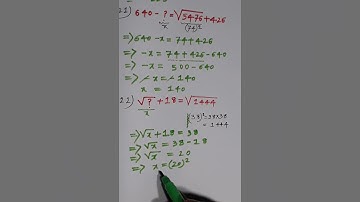 21) 640 - ? = √5476 + 426
x (74)²
=> 640 - x = 74 + 426
=> - x = 74 + 426 - 640
=> - x = 500 - 640
=> - x = - 140
x = 140
22) √? + 18 = √1444
x (38)² = 38x38
= 1444
=> √x + 18 = 38
=> √x = 38 - 18
=> √x = 20
=> x = (20)²